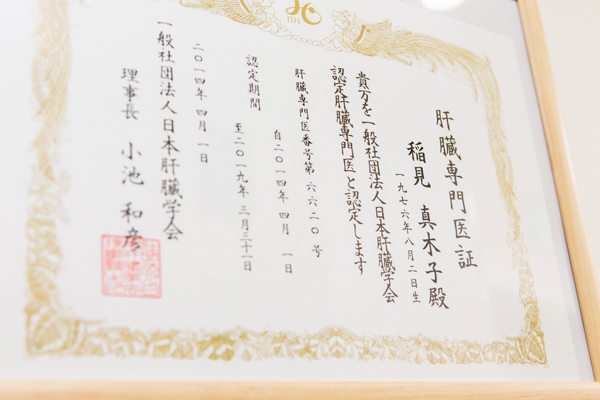 JSH
肝臓専門医証
稲見 真木子殿
一九七六年八月二日生
貴方を一般社団法人日本肝臓学会
認定肝臓専門医と認定します
肝臓専門医番号第 六六二〇 号
認定期間
自二〇一四年 四月 一日
至二〇一九年 三月三十一日
二〇一四年 四月 一日
一般社団法人日本肝臓学会
理事長 小池 和彦